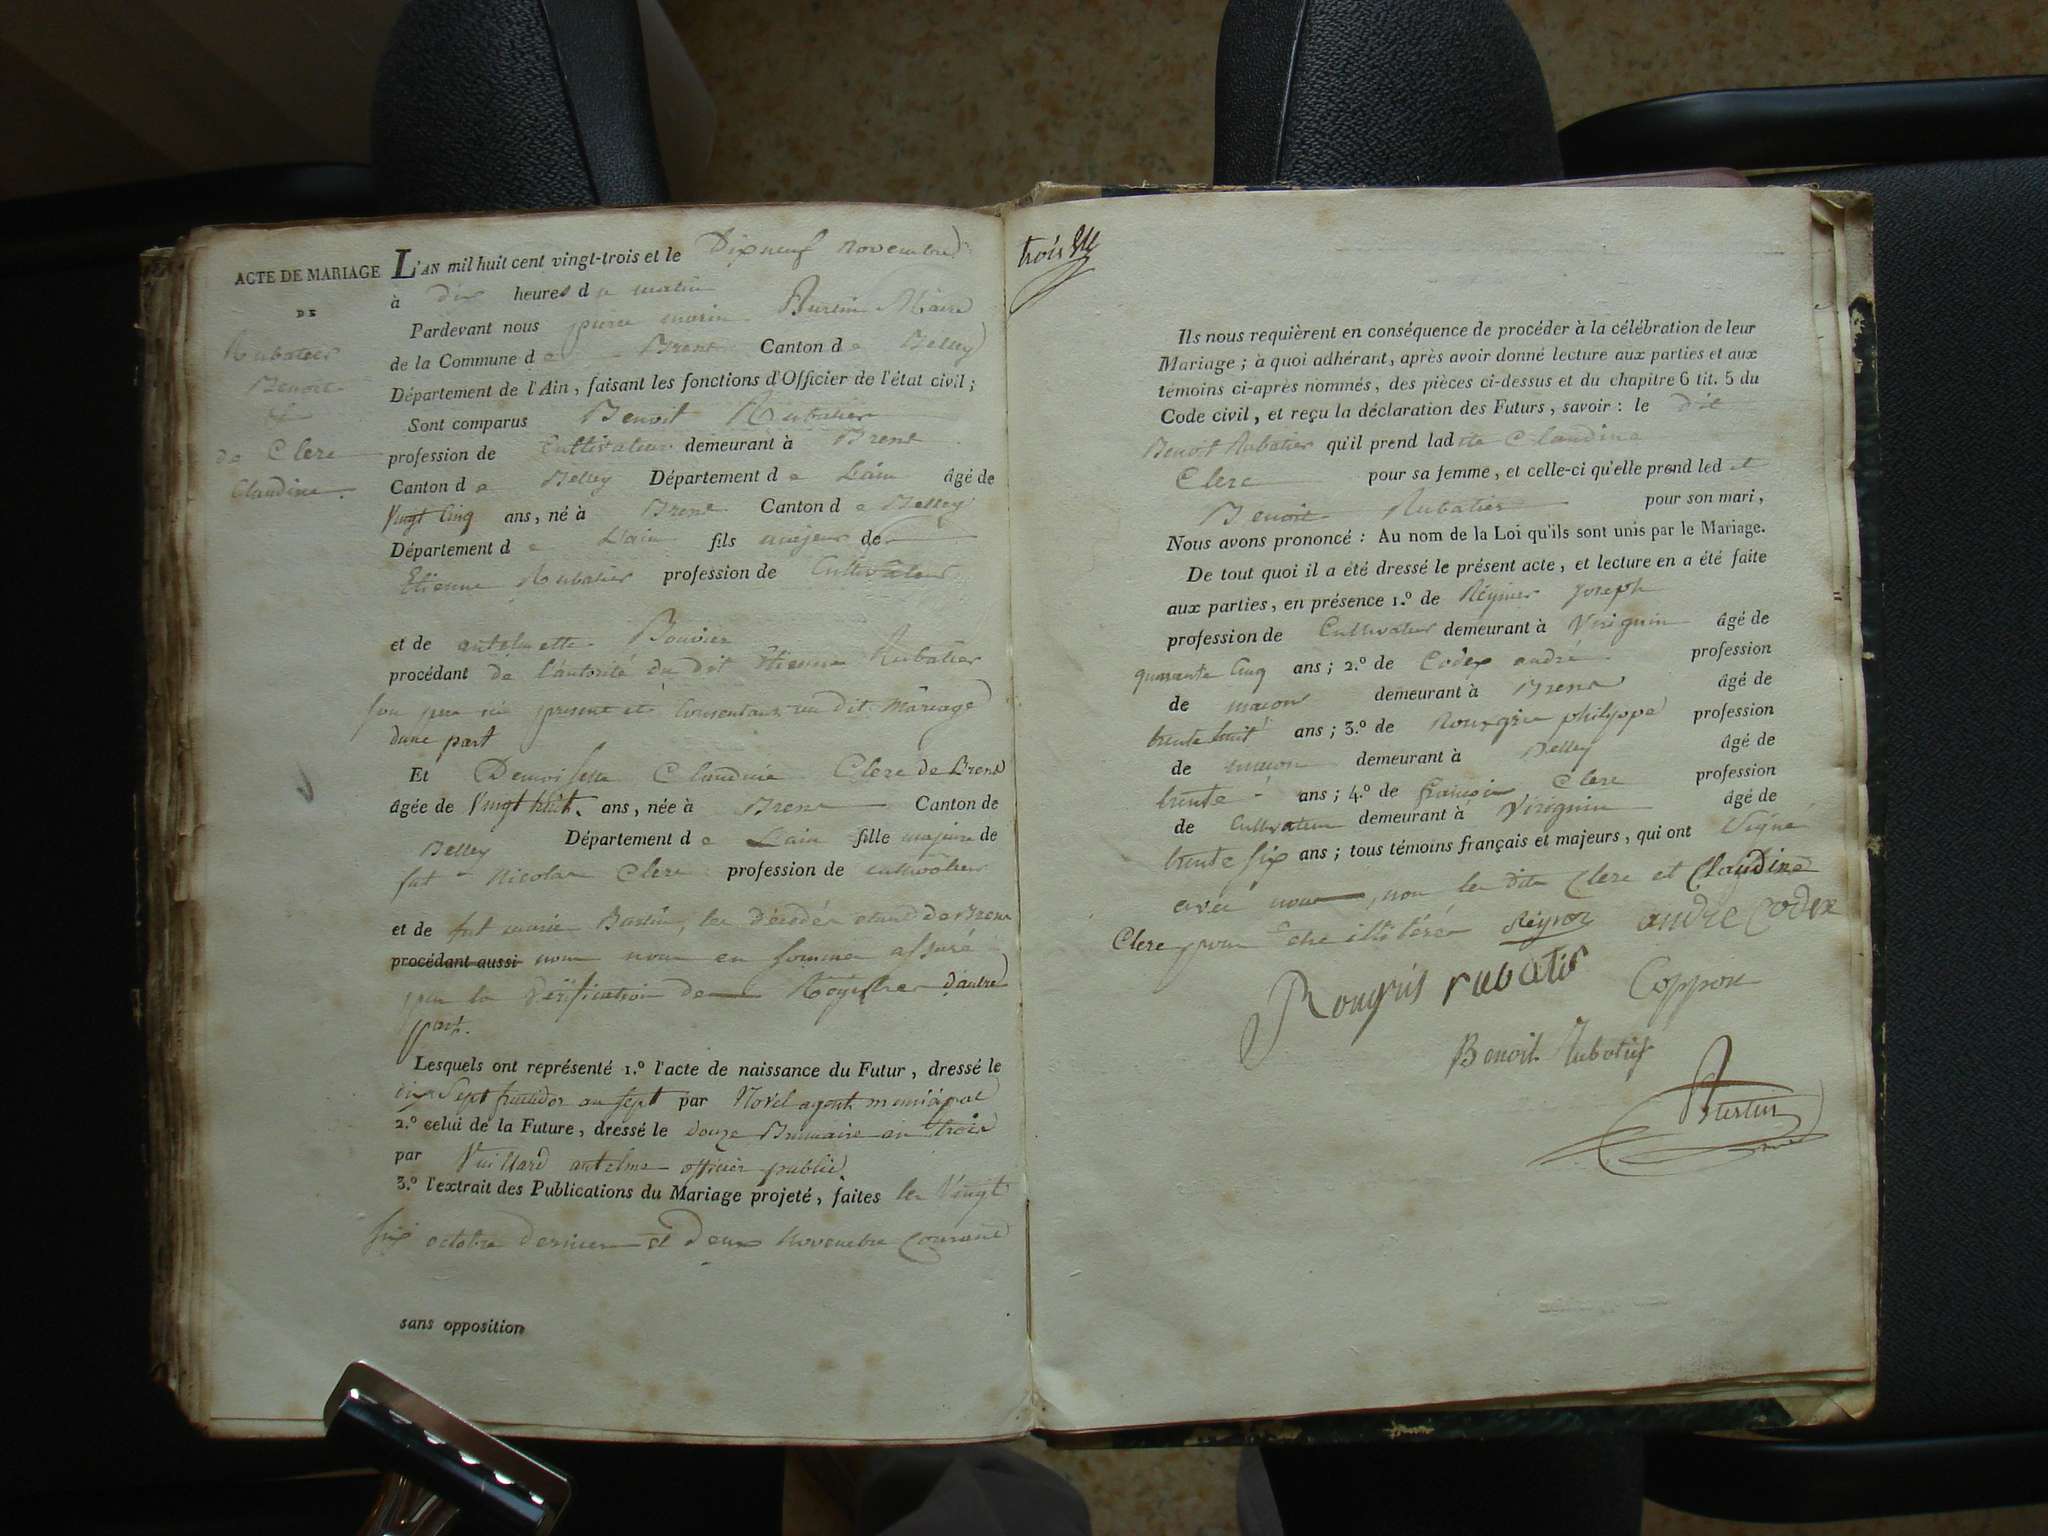 ACTE DE MARIAGE
DE
Rubatier
Benoit
&
de Clerc
Claudine.
L'AN mil huit cent vingt-trois et le Dixneuf novembre
à dix heures du matin
Pardevant nous pierre marin Burtin Maire
de la Commune de Brens Canton de Belley
Département de l'Ain, faisant les fonctions d'Officier de l'état civil;
Sont comparus Benoit Rubatier
profession de Cultivateur demeurant à Brens
Canton de Belley Département de Lain âgé de
Vingt Cinq ans, né à Brens Canton de Belley
Département de Lain fils majeur de
Etienne Rubatier profession de Cultivateur
et de antelmette Bouvier
procédant de l'autorité du dit Etienne Rubatier
son pere ici present et Consentant au dit Mariage
dune part
Et Demoiselle Claudine Clerc de Brens
âgée de Vingt huit ans, née à Brens Canton de
Belley Département de Lain fille majeure de
fut Nicolas Clerc profession de cultivateur
et de fut marie
procédant aussi nous nous en sommes assuré
par la Vérification de Régistres d'autre
part.
Lesquels ont représenté 1.º l'acte de naissance du Futur, dressé le
dix Sept fructidor an sept par Novel agent municipal
2.º celui de la Future, dressé le douze Brumaire an trois
par Vuillard antelme officier public
3.º l'extrait des Publications du Mariage projeté, faites les Vingt
six octobre dernier et deux Novembre Courant
sans opposition
trois
Ils nous requièrent en conséquence de procéder à la célébration de leur
Mariage; à quoi adhérant, après avoir donné lecture aux parties et aux
témoins ci-après nommés, des pièces ci-dessus et du chapitre 6 tit. 5 du
Code civil, et reçu la déclaration des Futurs, savoir: le dit
Benoit Rubatier qu'il prend ladite Claudine
Clerc pour sa femme, et celle-ci qu'elle prend ledit
Benoit Rubatier pour son mari,
Nous avons prononcé: Au nom de la Loi qu'ils sont unis par le Mariage.
De tout quoi il a été dressé le présent acte, et lecture en a été faite
aux parties, en présence 1.º de Réynier Joseph
profession de Cultivateur demeurant à Virignin âgé de
quarante Cinq ans; 2.º de Codex andré profession
de macon demeurant à Brens âgé de
trente huit ans; 3.º de philippe profession
de macon demeurant à Belley âgé de
trente ans; 4.º de françois Clerc profession
de Cultivateur demeurant à Virignin âgé de
trente six ans; tous témoins français et majeurs, qui ont Signé
avec nous, non les dits Clerc et Claudine
Clerc pour Etre illitérés andré Codex
rubatier Coppon
Benoit Rubatier
Burtin